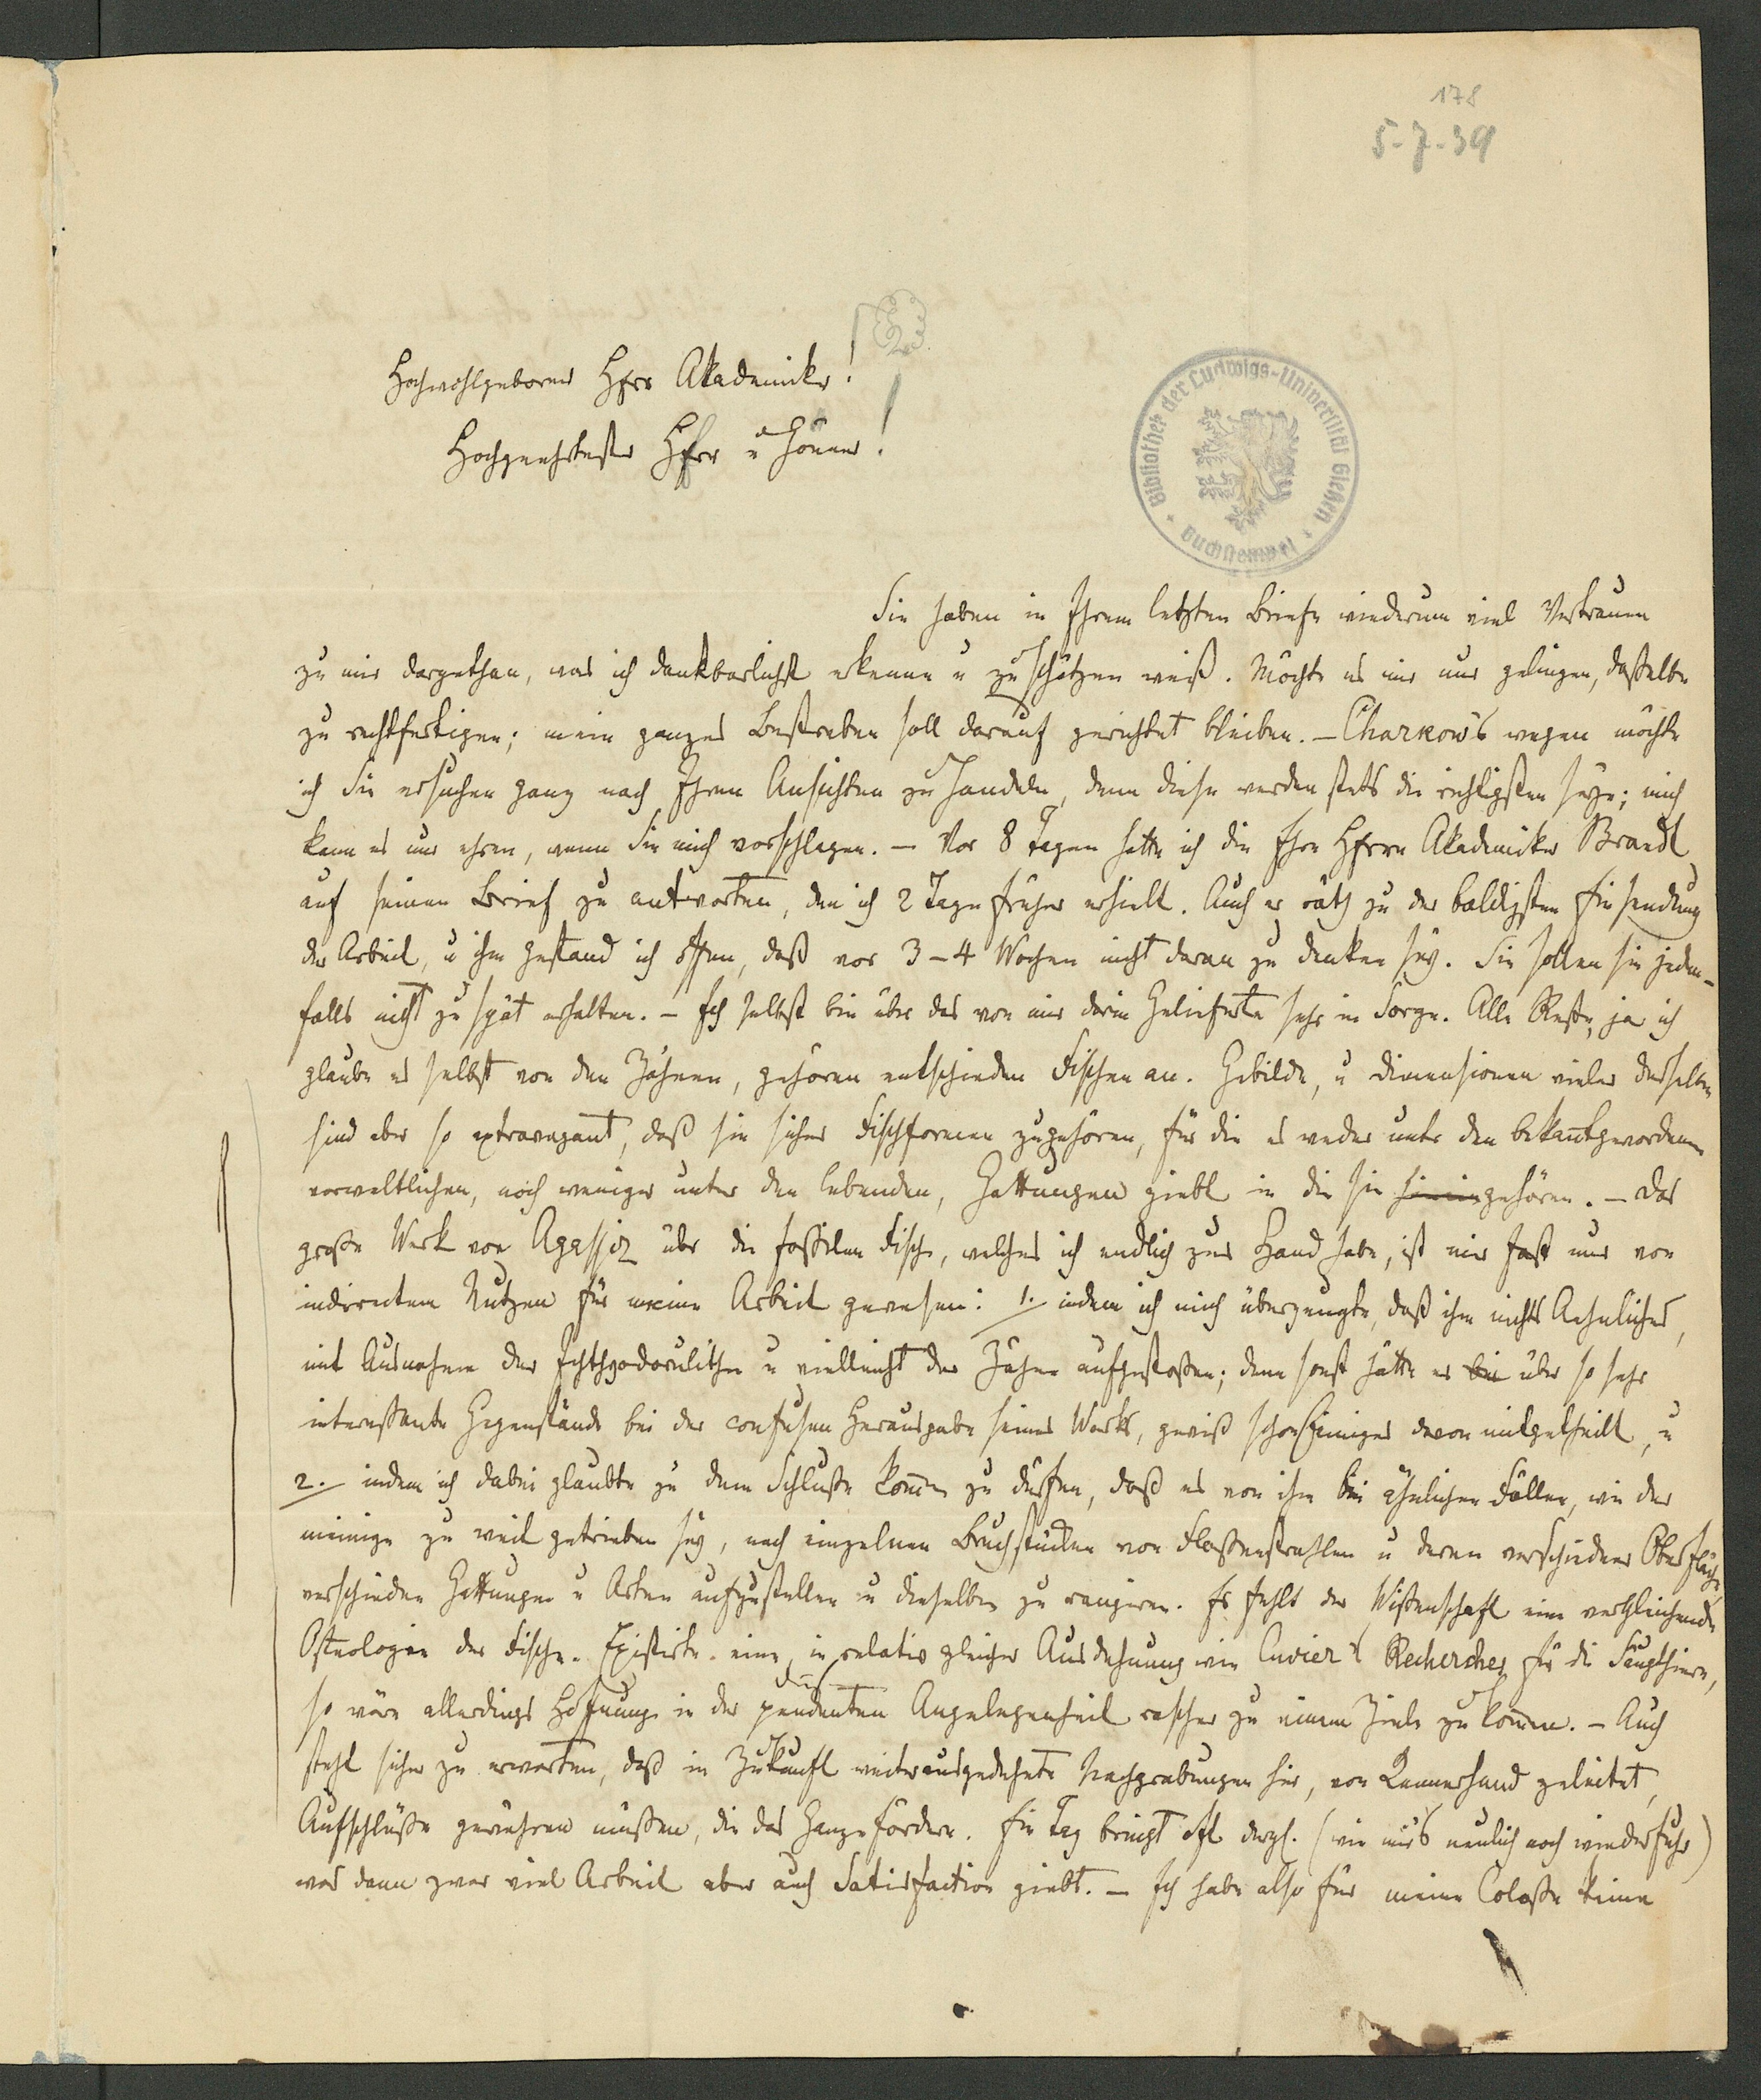 178
5-7-39
Hochwohlgeborner Herr Akademiker!
Hochgeehrtester Herr u Gönner!
Bibliothek der Ludwigs-Universität Gießen
Buchstempel
Sie haben in Ihrem letzten Briefe wiederum viel Vertrauen
zu mir dargethan, was ich dankbarlichst erkenne u zu schätzen weiß. Möchte es mir nur gelingen, daßelbe
zu rechtfertigen; mein ganzes Bestreben soll darauf gerichtet bleiben. – Charkow's wegen möchte
ich Sie ersuchen ganz nach Ihren Ansichten zu handeln, denn diese werden stets die richtigsten seyn; mich
kann es nur ehren, wenn Sie mich vorschlagen. – Vor 8 Tagen hatte ich die Ehre Herrn Akademiker Brandt
auf seinen Brief zu antworten, den ich 2 Tage früher erhielt. Auch er räth zu der baldigsten Einsendung
der Arbeit, u ihm gestand ich offen, daß vor 3–4 Wochen nicht daran zu denken sey. Sie sollen sie jeden-
falls nicht zu spät erhalten. – Ich selbst bin über das von mir darin Gelieferte sehr in Sorge. Alle Reste, ja ich
glaube es selbst von den Zähnen, gehören entschieden Fischen an. Gebilde, u Dimensionen vieler derselben
sind aber so extravagant, daß sie sicher Fischformen zugehören, für die es weder unter den bekañtgewordenen
vorweltlichen, noch weniger unter den lebenden, Gattungen giebt in die sie hineingehören. – Das
große Werk von Agassiz über die foßilen Fische, welches ich endlich zur Hand habe, ist mir fast nur von
indirectem Nutzen für meine Arbeit gewesen: 1. indem ich mich überzeugte, daß ihm nichts Aehnliches,
mit Ausnahme der Ichthyodorulithe u vielleicht der Zähne aufgestoßen; denn sonst hätte er bei über so sehr
intereßante Gegenstände bei der confusen Herausgabe seines Werks, gewiß schon Einiges davon mitgetheilt, u
2. indem ich dabei glaubte zu dem Schluße kom̃en zu dürfen, daß es von ihm bei ähnlichen Fällen, wie der
meinige zu weit getrieben sey, nach einzelnen Bruchstücken von Floßenstrahlen u deren verschiedener Oberfläche,
verschiedene Gattungen u Arten aufzustellen u dieselben zu rangiren. Es fehlt der Wißenschaft eine vergleichende
Osteologie der Fische. Existirte eine, in relativ gleicher Ausdehnung wie Cuvier's Recherches für die Säugthiere,
so wäre allerdings Hoffnung in der pendenten Angelegenheit rascher zu einem Ziele zu kom̃en. – Auch
steht sicher zu erwarten, daß in Zukunft weiter ausgedehnte Nachgrabungen hier, von Kennerhand geleitet,
Aufschlüße gewähren müßen, die das Ganze fördern. Ein Tag bringt oft dergl. (wie mir's neulich noch wiederfuhr)
was dann zwar viel Arbeit aber auch Satisfaction giebt. – Ich habe also für meine Coloße keine